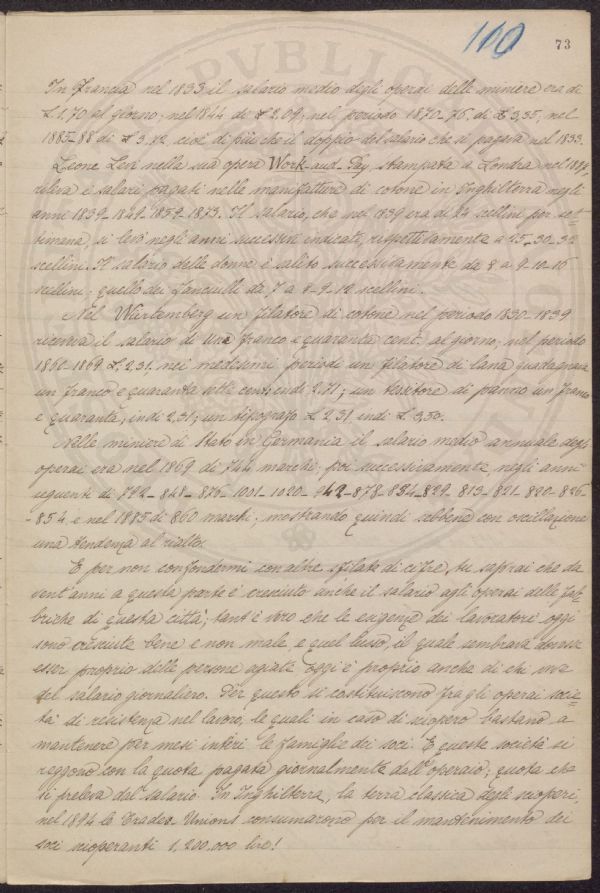 100 73
In Francia nel 1833 il salario medio degli operai delle miniere era di
£ 1,70 al giorno; nel 1844 di £ 2,09; nel periodo 1870-76, di £ 3,35; nel
1885-88 di £ 3,82 cioè di più che il doppio del salario che si pagava nel 1833.
Leone Levi nella sua opera Work-and-Pay, stampata a Londra nel
rileva i salarii pagati nelle manifatture di cotone in Inghilterra negli
anni 1839-1849-1859-1873. Il salario, che nel 1839 era di 24 scellini per set=
timana, si levò negli anni successivi indicati, rispettivamente a 25-30-32
scellini. Il salario delle donne è salito successivamente da 8 a 9-10-16
scellini; quello dei fanciulli da 7 a 8-9-12 scellini.
Nel Würtemberg un filatore di cotone nel periodo 1830-1839
riceveva il salario di una franco e quaranta cent. al giorno; nel periodo
1860-1869 £. 2.31. nei medesimi periodi un filatore di lana guadagnava
un franco e quaranta sette cent, indi 2.71; un tessitore di panno un franco
e quaranta, indi 2.31; un tipografo £ 2.31 indi £ 3,50.
Nelle miniere di Stato in Germania il salario medio annuale degli
operai era nel 1869 di 744 marchi; poi successivamente negli anni
seguenti di 792-848-876-1001-1020-942-878-834-829-813-821-820-826-
-854 e nel 1885 di 860 marchi; mostrando quindi sebbene con oscillazione
una tendenza al rialto.
E per non confondermi con altre sfilate di cifre, tu saprai che da
vent'anni a questa parte è cresciuto anche il salario agli operai delle fab=
briche di questa città; tant'è vero che le esigenze dei lavoratori oggi
sono cresciute bene e non male, e quel lusso, il quale sembrava dovesse
esser proprio delle persone agiate oggi è proprio anche di chi viva
del salario giornaliero. Per questo si costituiscono fra gli operai socie=
tà di resistenza nel lavoro, le quali in caso di sciopero bastano a
mantenere per mesi interi le famiglie dei soci. E queste società si
reggono con la quota pagata giornalmente dall'operaio; quota che
si preleva dal salario. In Inghilterra, la terra classica degli scioperi,
nel 1894 le Trades Unions consumarono per il mantenimento dei
soci scioperanti 1,200,000 lire!